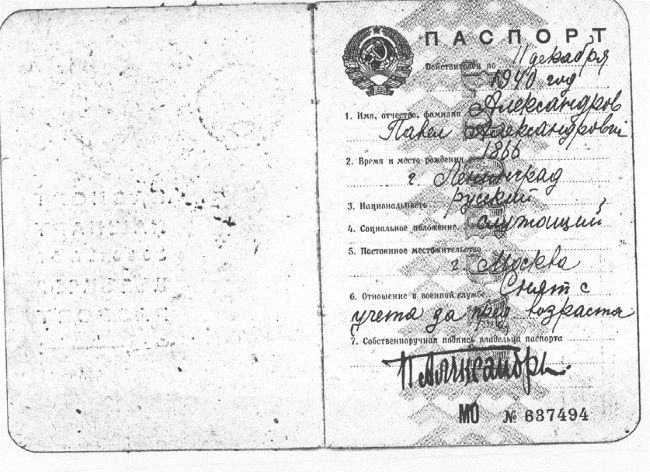 ПАСПОРТ
Действителен по 11 декабря
1940 год
1. Имя, отчество, фамилия Александров
Павел Александрович
2. Время и место рождения 1866
г. Ленинград
3. Национальность русский
4. Социальное положение служащий
5. Постоянное местожительство
г. Москва
6. Отношение к военной службе Снят с
учета возраста
7. Собственноручная подпись владельца паспорта
МО № 637494